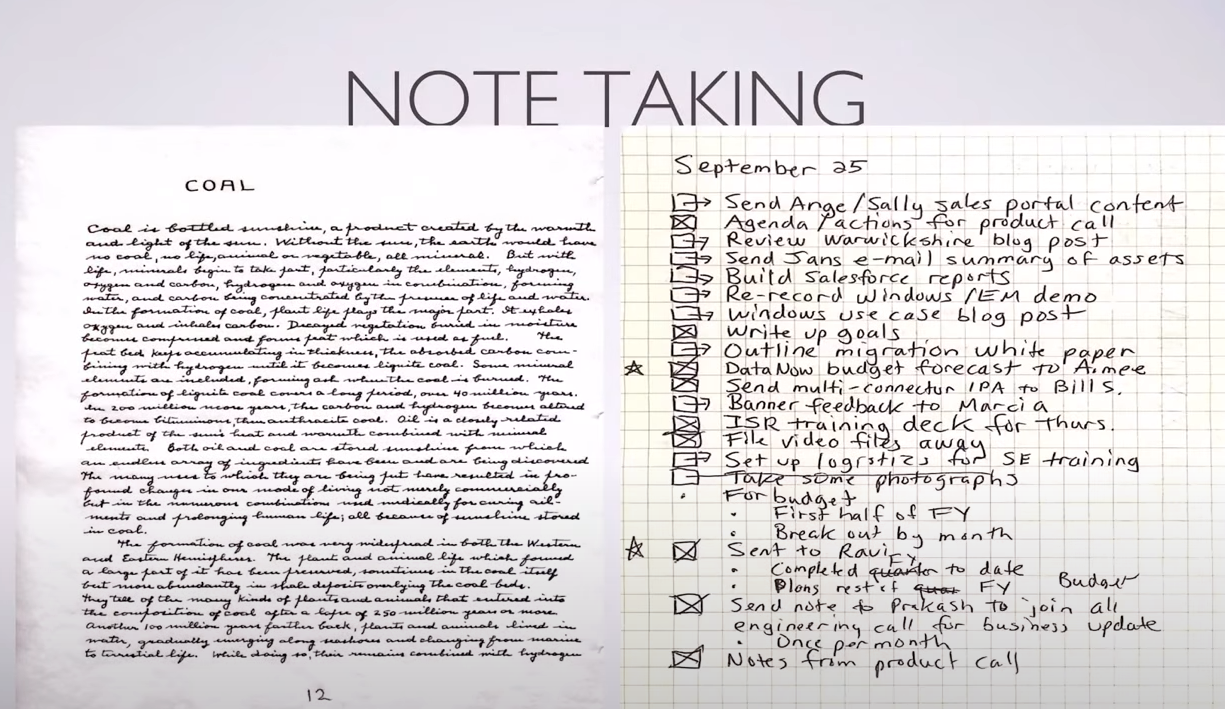 NOTE TAKING
COAL
Coal is bottled sunshine, a product created by the warmth
and light of the sun. Without the sun, the earth would have
no coal, no life, animal or vegetable, all mineral. But with
life, minerals begin to take part, particularly the elements, hydrogen,
oxygen and carbon, hydrogen and oxygen in combination, forming
water, and carbon being concentrated by the presence of life and water.
In the formation of coal, plant life plays the major part. It exhales
oxygen and inhales carbon. Decayed vegetation buried in moisture
becomes compressed and forms peat which is used as fuel. The
peat bed keeps accumulating in thickness, the absorbed carbon com-
bining with hydrogen until it becomes lignite coal. Some mineral
elements are included, forming ash when the coal is burned. The
formation of lignite coal covers a long period, over 40 million years.
In 200 million more years, the carbon and hydrogen becomes altered
to become bituminous, then anthracite coal. Oil is a closely related
product of the sun's heat and warmth combined with mineral
elements. Both oil and coal are stored sunshine from which
an endless array of ingredients have been and are being discovered
The many uses to which they are being put have resulted in pro-
found changes in our mode of living not merely commercially
but in the numerous combination used medically for curing ail-
ments and prolonging human life; all because of sunshine stored
in coal.
The formation of coal was very widespread in both the Western
and Eastern Hemispheres. The plant and animal life which formed
a large part of it has been preserved, sometimes in the coal itself
but more abundantly in shale deposits overlying the coal beds.
They tell of the many kinds of plants and animals that entered into
the composition of coal after a lapse of 250 million years or more
Another 100 million years farther back, plants and animals lived in
water, gradually emerging along seashores and changing from marine
to terrestial life. While doing so, their remains combined with hydrogen
12
September 25
Send Ange/Sally sales portal content
Agenda/actions for product call
Review Warwickshire blog post
Send Jans e-mail summary of assets
Build Salesforce reports
Re-record Windows/EM demo
Windows use case blog post
Write up goals
Outline migration white paper
DataNow budget forecast to Aimee
Send multi-connector IPA to Bill S.
Banner feedback to Marcia
ISR training deck for Thurs.
File video files away
Set up logistics for SE training
Take some photographs
· For budget
· First half of FY
· Break out by month
Sent to Ravi
FY
· Completed quarter to date
· Plans rest of FY Budget
Send note to Prakash to join all
engineering call for business update
· Once per month
Notes from product call